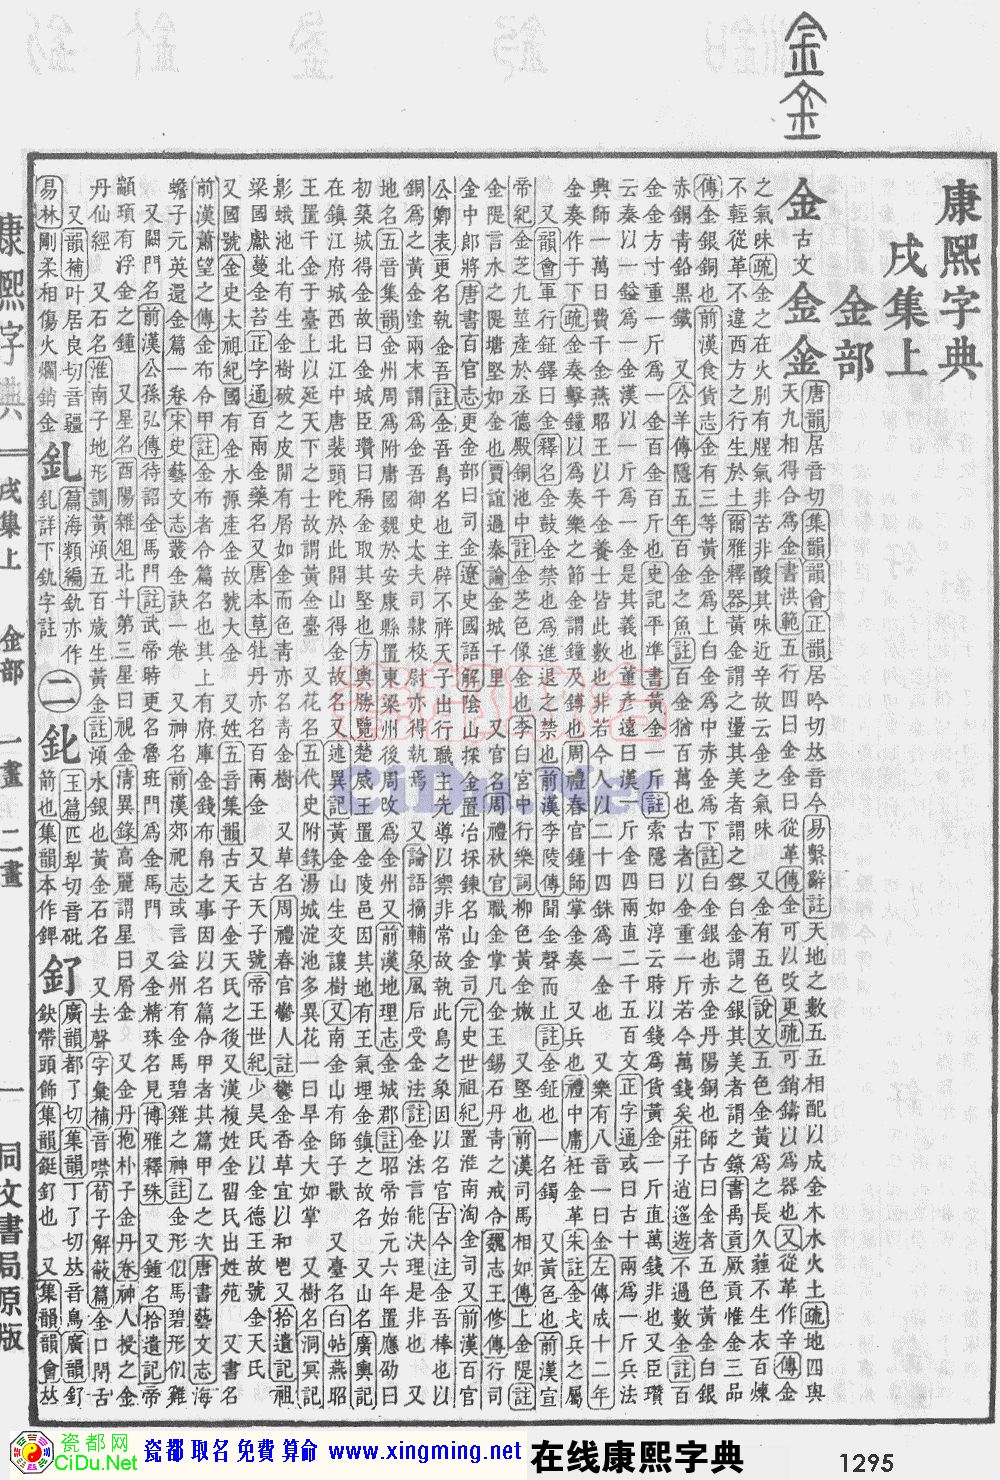 康熙字典
戌集上
金部
金古文金金
唐韻居音切集韻韻會正韻居吟切𠀤音今易繫辭註天地之數五五相配以成金木水火土疏地四與
天九相得合爲金書洪範五行四曰金金曰從革傳金可以改更疏可銷鑄以爲器也又從革作辛傳金
之氣味疏金之在火別有腥氣非苦非酸其味近辛故云金之氣味 又金有五色說文五色金黃爲之長久薶不生衣百煉
不輕從革不違西方之行生於土爾雅釋器黃金謂之璗其美者謂之鏐白金謂之銀其美者謂之鐐書禹貢厥貢惟金三品
傳金銀銅也前漢食貨志金有三等黃金爲上白金爲中赤金爲下註白金銀也赤金丹陽銅也師古曰金者五色黃金白銀
赤銅靑鉛黑鐵 又公羊傳隱五年百金之魚註百金猶百萬也古者以金重一斤若今萬錢矣莊子逍遙遊不過數金註百
金金方寸重一斤爲一金百金百斤也史記平準書黃金一斤註索隱曰如淳云時以錢爲貨黃金一斤直萬錢非也又臣瓚
云秦以一鎰爲一金漢以一斤爲一金是其義也董彥遠曰漢一斤金四兩直二千五百文正字通或曰古十兩爲一斤兵法
興師一萬日費千金燕昭王以千金養士皆此數也非若今人以二十四銖爲一金也 又樂有八音一曰金左傳成十二年
金奏作于下疏金奏擊鐘以爲奏樂之節金謂鐘及鎛也周禮春官鍾師掌金奏 又兵也禮中庸衽金革朱註金戈兵之屬
 又韻會軍行鉦鐸曰金釋名金鼓金禁也爲進退之禁也前漢李陵傳聞金聲而止註金鉦也一名鐲 又黃色也前漢宣
帝紀金芝九莖產於丞德殿銅池中註金芝色像金也李白宮中行樂詞柳色黃金嫩 又堅也前漢司馬相如傳上金隄註
金隄言水之隄塘堅如金也賈誼過秦論金城千里 又官名周禮秋官職金掌凡金玉錫石丹靑之戒令魏志王修傳行司
金中郎將唐書百官志更金部曰司金遼史國語解隂山採金置冶採鍊名山金司元史世祖紀置淮南淘金司又前漢百官
公卿表更名執金吾註金吾鳥名也主辟不祥天子出行職主先導以禦非常故執此鳥之象因以名官古今注金吾棒也以
銅爲之黃金塗兩末謂爲金吾御史大夫司隷校尉亦得執焉 又論語摘輔象風后受金法註金法言能決理是非也 又
地名五音集韻金州周爲附庸國魏於安康縣置東梁州後周改爲金州又前漢地理志金城郡註昭帝始元六年置應劭曰
初築城得金故曰金城臣瓚曰稱金取其堅也方輿勝覽楚威王置金陵邑因其地有王氣埋金鎮之故名 又山名廣輿記
在鎮江府城西北江中唐裴頭陀於此開山得金故名又述異記黃金山生交讓樹又南金山有師子獸 又臺名白帖燕昭
王置千金于臺上以延天下之士故謂黃金臺 又花名五代史附錄湯城淀池多異花一曰旱金大如掌 又樹名洞冥記
影蛾池北有生金樹破之皮閒有屑如金而色靑亦名靑金樹 又草名周禮春官鬱人註鬱金香草宜以和鬯又拾遺記祖
梁國獻蔓金苔正字通百兩金藥名又唐本草牡丹亦名百兩金 又古天子號帝王世紀少昊氏以金德王故號金天氏
又國號金史太祖紀國有金水源產金故號大金 又姓五音集韻古天子金天氏之後又漢複姓金留氏出姓苑 又書名
前漢蕭望之傳金布令甲註金布者令篇名也其上有府庫金錢布帛之事因以名篇令甲者其篇甲乙之次唐書藝文志海
蟾子元英還金篇一卷宋史藝文志叢金訣一卷 又神名前漢郊祀志或言益州有金馬碧雞之神註金形似馬碧形似雞
 又闕門名前漢公孫弘傳待詔金馬門註武帝時更名魯班門爲金馬門 又金精珠名見博雅釋珠 又鍾名拾遺記帝
顓頊有浮金之鍾 又星名酉陽雜俎北斗第三星曰視金淸異錄高麗謂星曰屑金 又金丹抱朴子金丹卷神人授之金
丹仙經 又石名淮南子地形訓黃澒五百歲生黃金註澒水銀也黃金石名 又去聲字彙補音噤荀子解蔽篇金口閉舌
 又韻補叶居良切音疆
易林剛柔相傷火爛銷金
釓
篇海類編釚亦作
釓詳下釚字註
二
𨥆
玉篇匹犁切音砒
箭也集韻本作錍
釕
廣韻都了切集韻丁了切𠀤音鳥廣韻釕
鈌帶頭飾集韻鋌釕也 又集韻韻會𠀤
康熙字典 戌集上 金部 一畫 二畫 一 同文書局原版
CiDu.Net
瓷都网
CiDu.Net
瓷都 取名 免費 算命 www.xingming.net 在线康熙字典 1295